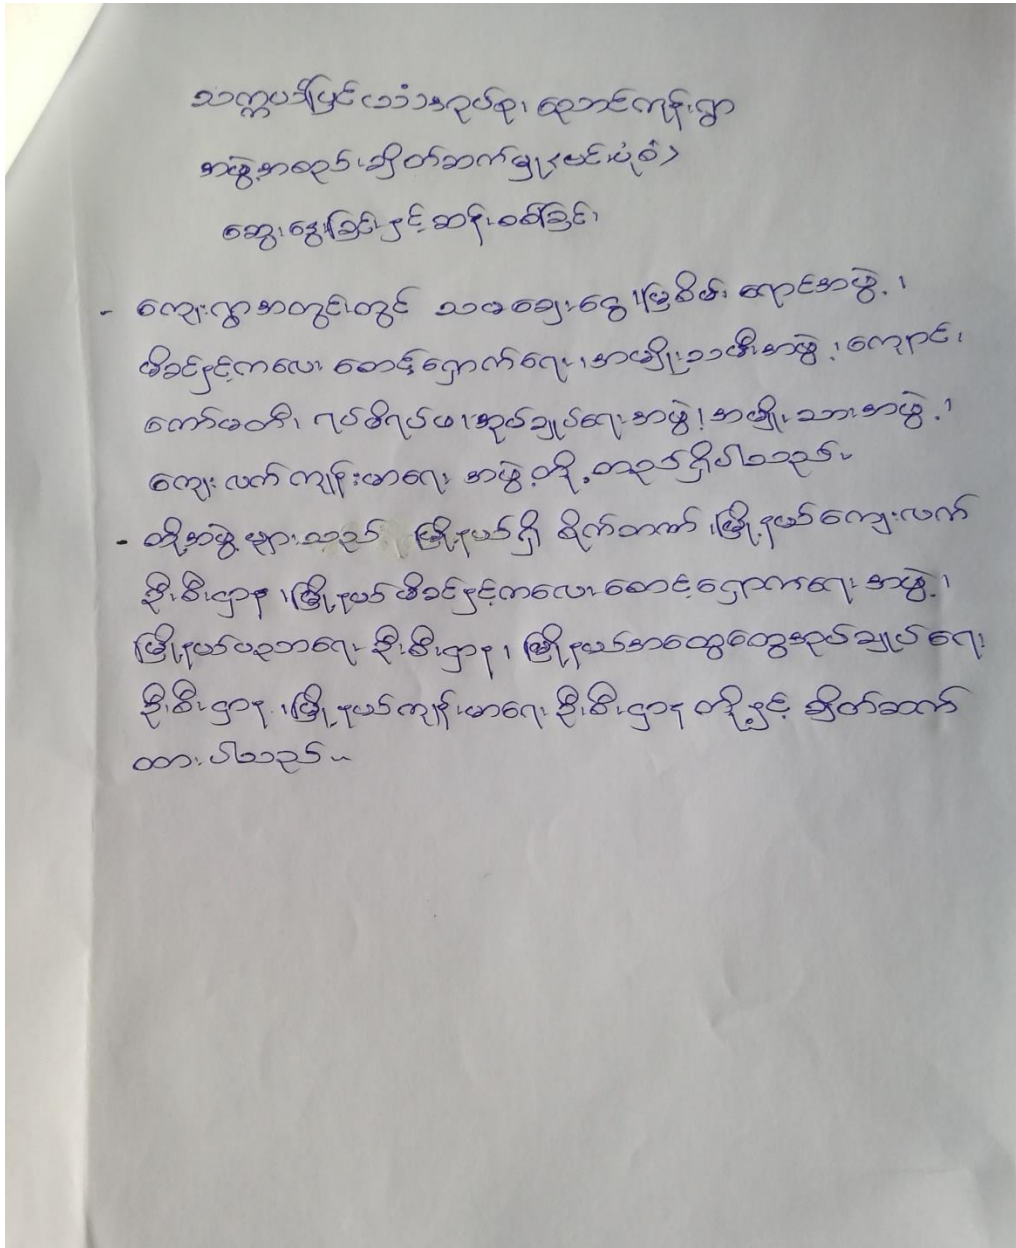 သက္ကယ်ပြင် ကျေးရွာအုပ်စု၊ ညောင်ကုန်းရွာ
အဖွဲ့အစည်းချိတ်ဆက်မှု(ဗင်းပုံစံ)
ဆွေးနွေးခြင်းနှင့်ဆန်းစစ်ခြင်း
- ကျေးရွာအတွင်းတွင် သမချေးငွေ၊ မြစိမ်းရောင်အဖွဲ့၊
မိခင်နှင့်ကလေး စောင့်ရှောက်ရေး၊ အမျိုးသမီးအဖွဲ့၊ ကျောင်း
ကော်မတီ၊ ရပ်မိရပ်ဖ၊ အုပ်ချုပ်ရေးအဖွဲ့၊ အမျိုးသားအဖွဲ့၊
ကျေးလက်ကျန်းမာရေး အဖွဲ့တို့ တည်ရှိပါသည်။
- ထိုအဖွဲ့များသည် မြို့နယ်ရှိ စိုက်ဘဏ်၊ မြို့နယ်ကျေးလက်
ဦးစီးဌာန၊ မြို့နယ်မိခင်နှင့်ကလေးစောင့်ရှောက်ရေး အဖွဲ့၊
မြို့နယ်ပညာရေး ဦးစီးဌာန၊ မြို့နယ်အထွေထွေအုပ်ချုပ်ရေး
ဦးစီးဌာန၊ မြို့နယ်ကျန်းမာရေး ဦးစီးဌာန တို့နှင့် ချိတ်ဆက်
ထားပါသည်။